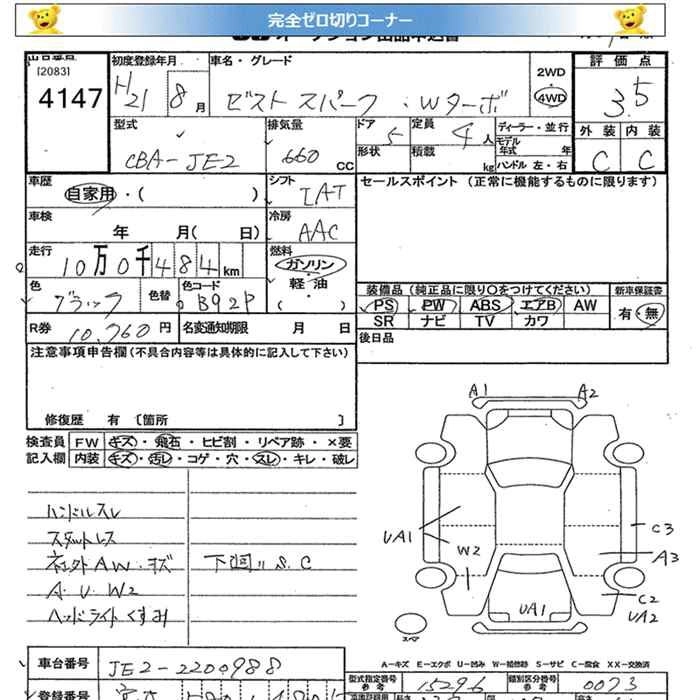 完全ゼロ切りコーナー
出品番号 初度登録年月 車名・グレード 2WD 評価点
[2083]
4147 H21 8月 ゼスト スパーク・Wターボ 4WD 3.5
型式 排気量 ドア 定員 ディーラー・並行 外装 内装
CBA-JE2 660 CC 5 4人 モデル年式 年 C C
形状 積載 kg ハンドル 左・右
車歴 シフト セールスポイント (正常に機能するものに限ります)
自家用・( ) IAT
車検 冷房
年 月( 日) AAC
走行 燃料
10万0千484km ガソリン・軽油・( )
装備品 (純正品に限り○をつけてください) 新車保証書
色 色替 色コード
ブラック B92P
PS PW ABS エアB AW 有・無
SR ナビ TV カワ
R券 10,760円 名変通知期限 月 日
後日品
注意事項申告欄(不具合内容等は具体的に記入して下さい)
修復歴 有 [箇所 ]
検査員 FW キズ・飛石・ヒビ割・リペア跡・×要
記入欄 内装 キズ・汚レ・コゲ・穴・スレ・キレ・破レ
ハンドルスレ
スタットレス
社外AW・キズ 下廻リS.C
A・U・W2
ヘッドライトくすみ
A1 A2
UA1 W2 C3
A3
C2
UA1 UA2
スペア
A－キズ E－エクボ U－凹み W－補修跡 S－サビ C－腐食 XX－交換済
車台番号 JE2-2200988
型式指定番号 参考 15296 類別区分番号 参考 0073
登録番号